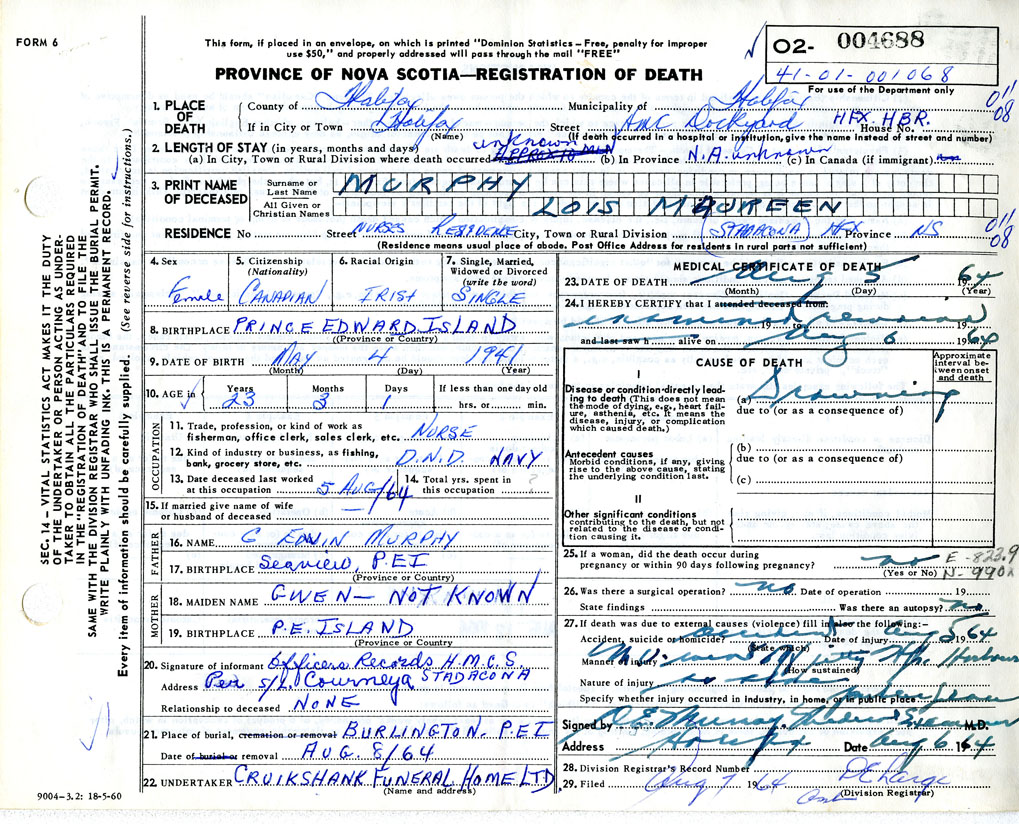 FORM 6
This form, if placed in an envelope, on which is printed "Dominion Statistics—Free, penalty for improper
use $50," and properly addressed will pass through the mail "FREE"
PROVINCE OF NOVA SCOTIA—REGISTRATION OF DEATH
O2- 004688
41-01-001068
For use of the Department only
1. PLACE OF DEATH
County of Halifax Municipality of Halifax 011
If in City or Town Halifax Street HMC Dockyard HFX. HBR. House No. 08
(Name) (If death occurred in a hospital or institution, give the name instead of street and number)
2. LENGTH OF STAY (in years, months and days) unknown
(a) In City, Town or Rural Division where death occurred APPROX 10 MIN (b) In Province N.A. unknown (c) In Canada (if immigrant)
3. PRINT NAME OF DECEASED
Surname or Last Name MURPHY
All Given or Christian Names LOIS MAUREEN
RESIDENCE No Street NURSES RESIDENCE City, Town or Rural Division STADACONA HFX Province NS 011
08
(Residence means usual place of abode. Post Office Address for residents in rural parts not sufficient)
4. Sex Female
5. Citizenship (Nationality) CANADIAN
6. Racial Origin IRISH
7. Single, Married, Widowed or Divorced (write the word) SINGLE
8. BIRTHPLACE PRINCE EDWARD ISLAND
(Province or Country)
9. DATE OF BIRTH MAY 4 1941
(Month) (Day) (Year)
10. AGE in Years 23 Months 3 Days 1 If less than one day old hrs. or min.
OCCUPATION
11. Trade, profession, or kind of work as fisherman, office clerk, sales clerk, etc. NURSE
12. Kind of industry or business, as fishing, bank, grocery store, etc. D.N.D. NAVY
13. Date deceased last worked at this occupation 5 AUG/64
14. Total yrs. spent in this occupation ?
15. If married give name of wife or husband of deceased —
FATHER
16. NAME G EDWIN MURPHY
17. BIRTHPLACE Seaview, P.E.I
(Province or Country)
MOTHER
18. MAIDEN NAME GWEN — NOT KNOWN
19. BIRTHPLACE P.E. ISLAND
(Province or Country)
20. Signature of informant Officers Records H.M.C.S. STADACONA
Address Per S/L. Courneya
Relationship to deceased NONE
21. Place of burial, cremation or removal BURLINGTON, P.E.I
Date of burial or removal AUG. 8/64
22. UNDERTAKER CRUIKSHANK FUNERAL HOME LTD.
(Name and address)
9004-3.2: 18-5-60
MEDICAL CERTIFICATE OF DEATH
23. DATE OF DEATH Aug 5 1964
(Month) (Day) (Year)
24. I HEREBY CERTIFY that I attended deceased from:
examined 19 19
and last saw h alive on Aug 6 1964
CAUSE OF DEATH
Approximate interval between onset and death
I
Disease or condition directly leading to death (This does not mean the mode of dying, e.g., heart failure, asthenia, etc. It means the disease, injury, or complication which caused death.)
(a) Drowning
due to (or as a consequence of)
Antecedent causes
Morbid conditions, if any, giving rise to the above cause, stating the underlying condition last.
(b)
due to (or as a consequence of)
(c)
II
Other significant conditions
contributing to the death, but not related to the disease or condition causing it.
25. If a woman, did the death occur during pregnancy or within 90 days following pregnancy? no
(Yes or No)
E-823.9
N-990x
26. Was there a surgical operation? no Date of operation 19
State findings Was there an autopsy? no
27. If death was due to external causes (violence) fill in also the following:—
Accident, suicide or homicide? accident Date of injury Aug 5 1964
(State which)
Manner of injury Harbour
(How sustained)
Nature of injury
Specify whether injury occurred in industry, in home, or in public place. public place
Signed by Murray M.D.
Address Halifax Date Aug 6 1964
28. Division Registrar's Record Number
29. Filed Aug 7 1964
(Division Registrar)
SEC. 14—VITAL STATISTICS ACT MAKES IT THE DUTY
OF THE UNDERTAKER OR PERSON ACTING AS UNDER-
TAKER TO OBTAIN ALL THE PARTICULARS REQUIRED
IN THE "REGISTRATION OF DEATH" AND TO FILE THE
SAME WITH THE DIVISION REGISTRAR WHO SHALL ISSUE THE BURIAL PERMIT.
WRITE PLAINLY WITH UNFADING INK. THIS IS A PERMANENT RECORD.
Every item of information should be carefully supplied. (See reverse side for instructions.)